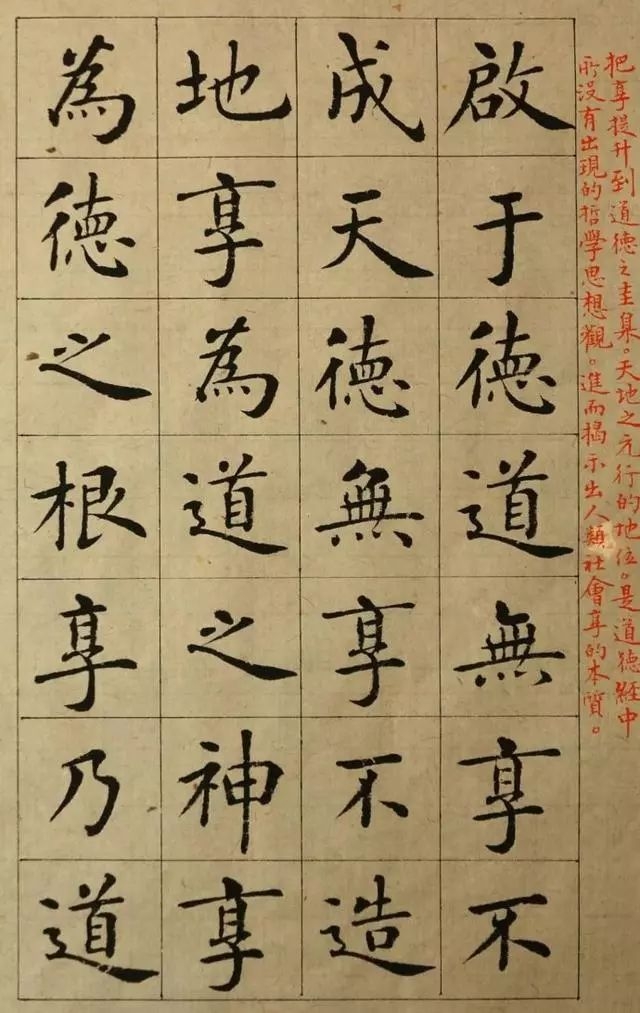 把享提升到道德之圭臬。天地之元行的地位。是道德經中
所没有出現的哲學思想觀。進而揭示出人類社會享的本質。
啟于德道無享不
成天德無享不造
地享為道之神享
為德之根享乃道